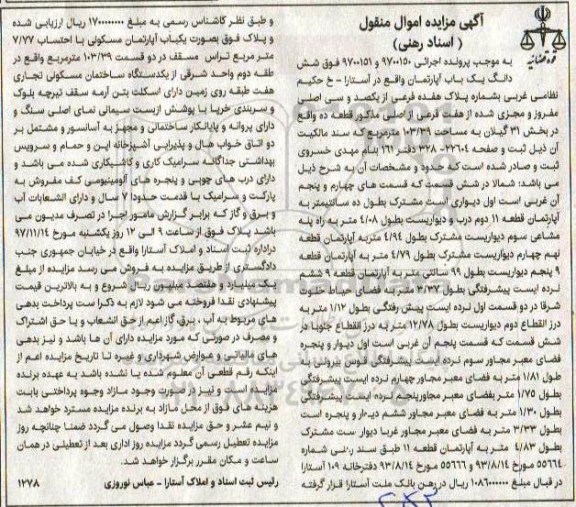 آگهی مزایده اموال منقول
( اسناد رهنی )
به موجب پرونده اجرائی ۹۷۰۰۱۵۰ و ۹۷۰۰۱۵۱ فوق شش
دانگ یک باب آپارتمان واقع در آستارا - خ حکیم
نظامی غربی بشماره پلاک هفده فرعی از یکصد و سی اصلی
مفروز و مجزی شده از هفت فرعی از اصلی مذکور قطعه ده واقع
در بخش ۳۱ گیلان به مساحت ۱۰۳/۳۹ مترمربع که سند مالکیت
آن ذیل ثبت و صفحه ۲۲۶۰۴- ۳۲۸ دفتر ۱۶۱ بنام مهدی خسروی
ثبت و صادر شده است که حدود و مشخصات آن به شرح ذیل
می باشد: شمالا در شش قسمت که قسمت های چهارم و پنجم
آن غربی است اول دیواری است مشترک بطول ده سانتیمتر به
آپارتمان قطعه ۱۱ دوم درب و دیواریست بطول ۴/۰۸ متر به راه پله
مشاعی سوم دیواریست مشترک بطول ۴/۹۴ متر به آپارتمان قطعه
نهم چهارم دیواریست مشترک بطول ۴/۷۹ متر به آپارتمان قطعه
۹ پنجم دیواریست بطول ۹۹ سانتی متر به آپارتمان قطعه ۹ ششم
نرده ایست پیشرفتگی بطول ۳/۳۷ متر به فضای حیاط خلوت
شرقا در دو قسمت اول نرده ایست پیش رفتگی بطول ۱/۱۲ متر به
درز انقطاع دوم دیواریست بطول ۱۲/۷۸ متر به درز انقطاع جنوبا در
شش قسمت که قسمت پنجم آن غربی است اول دیوار و پنجره
فضای معبر مجاور سوم نرده ایست پیشرفتگی قوس بیرونی به
طول ۱/۸۱ متر به فضای معبر مجاور چهارم نرده ایست پیشرفتگی
بطول ۱/۷۵ متر بفضای معبر مجاور پنجم نرده ایست پیشرفتگی
بطول ۱/۳۰ متر به فضای معبر مجاور ششم دیوار و پنجره است
بطول ۳/۳۳ متر به فضای معبر مجاور غربا دیوار است مشترک
بطول ۴/۸۳ متر به آپارتمان قطعه ۱۱ طبق سند رهنی شماره
۵۵۶۶۴ مورخ ۹۳/۸/۱۴ و ۵۵۶۶۶ مورخ ۹۳/۸/۱۴ دفترخانه ۱۰۹ آستارا
در قبال مبلغ ۱۰۸۶۰۰۰۰۰۰ ریال در رهن بانک ملت آستارا قرار گرفته
و طبق نظر کاشناس رسمی به مبلغ ۱۷۰۰۰۰۰۰۰۰ ریال ارزیابی شده
و پلاک فوق بصورت یکباب آپارتمان مسکونی با احتساب ۷/۷۷
متر مربع تراس مسقف در دو قسمت ۱۰۳/۳۹ مترمربع واقع در
طقه دوم واحد شرقی از یکدستگاه ساختمان مسکونی تجاری
هفت طبقه روی زمین دارای اسکلت بتن آرمه سقف تیرچه بلوک
و سربندی خرپا با پوشش ازبست سیمانی نمای اصلی سنگ و
دارای پروانه و پایانکار ساختمانی و مجهز به آسانسور و مشتمل بر
دو اتاق خواب هال و پذیرایی آشپزخانه اپن و حمام و سرویس
بهداشتی جداگانه سرامیک کاری و کاشیکاری شده می باشد و
دارای درب های چوبی و پنجره های آلومینیومی کف مفروش به
پارکت و سرامیک با قدمت حدودا ۷ سال و دارای انشعابات آب
و برق و گاز که برابر گزارش مامور اجرا در تصرف مدیون می
باشد پلاک فوق از ساعت ۹ الی ۱۲ روز یکشنبه مورخ ۹۷/۱۱/۱۴
دراداره ثبت اسناد و املاک آستارا واقع در خیابان جمهوری جنب
دادگستری از طریق مزایده به فروش می رسد مزایده از مبلغ
یک میلیارد و هفتصد میلیون ریال شروع و به بالاترین قیمت
پیشنهادی نقدا فروخته می شود لازم به ذکر است پرداخت بدهی
های مربوط به آب ، برق، گاز اعم از حق انشعاب و یا حق اشتراک
و مصرف در صورتی که مورد مزایده دارای آن ها باشد و نیز بدهی
های مالیاتی و عوارض شهرداری و غیره تا تاریخ مزایده اعم از
اینکه رقم قطعی آن معلوم شده یا نشده باشد به عهده برنده
مزایده است و نیز در صورت وجود مازاد وجوه پرداختی بابت
هزینه های فوق از محل مازاد به برنده مزایده مسترد خواهد شد
و نیم عشر و حق مزایده نقدا وصول می گردد ضمنا چنانچه روز
مزایده تعطیل رسمی گردد مزایده روز اداری بعد از تعطیلی در همان
ساعت و مکان مقرر برگزار خواهد شد.
رئیس ثبت اسناد و املاک آستارا - عباس نوروزی ۱۲۷۸